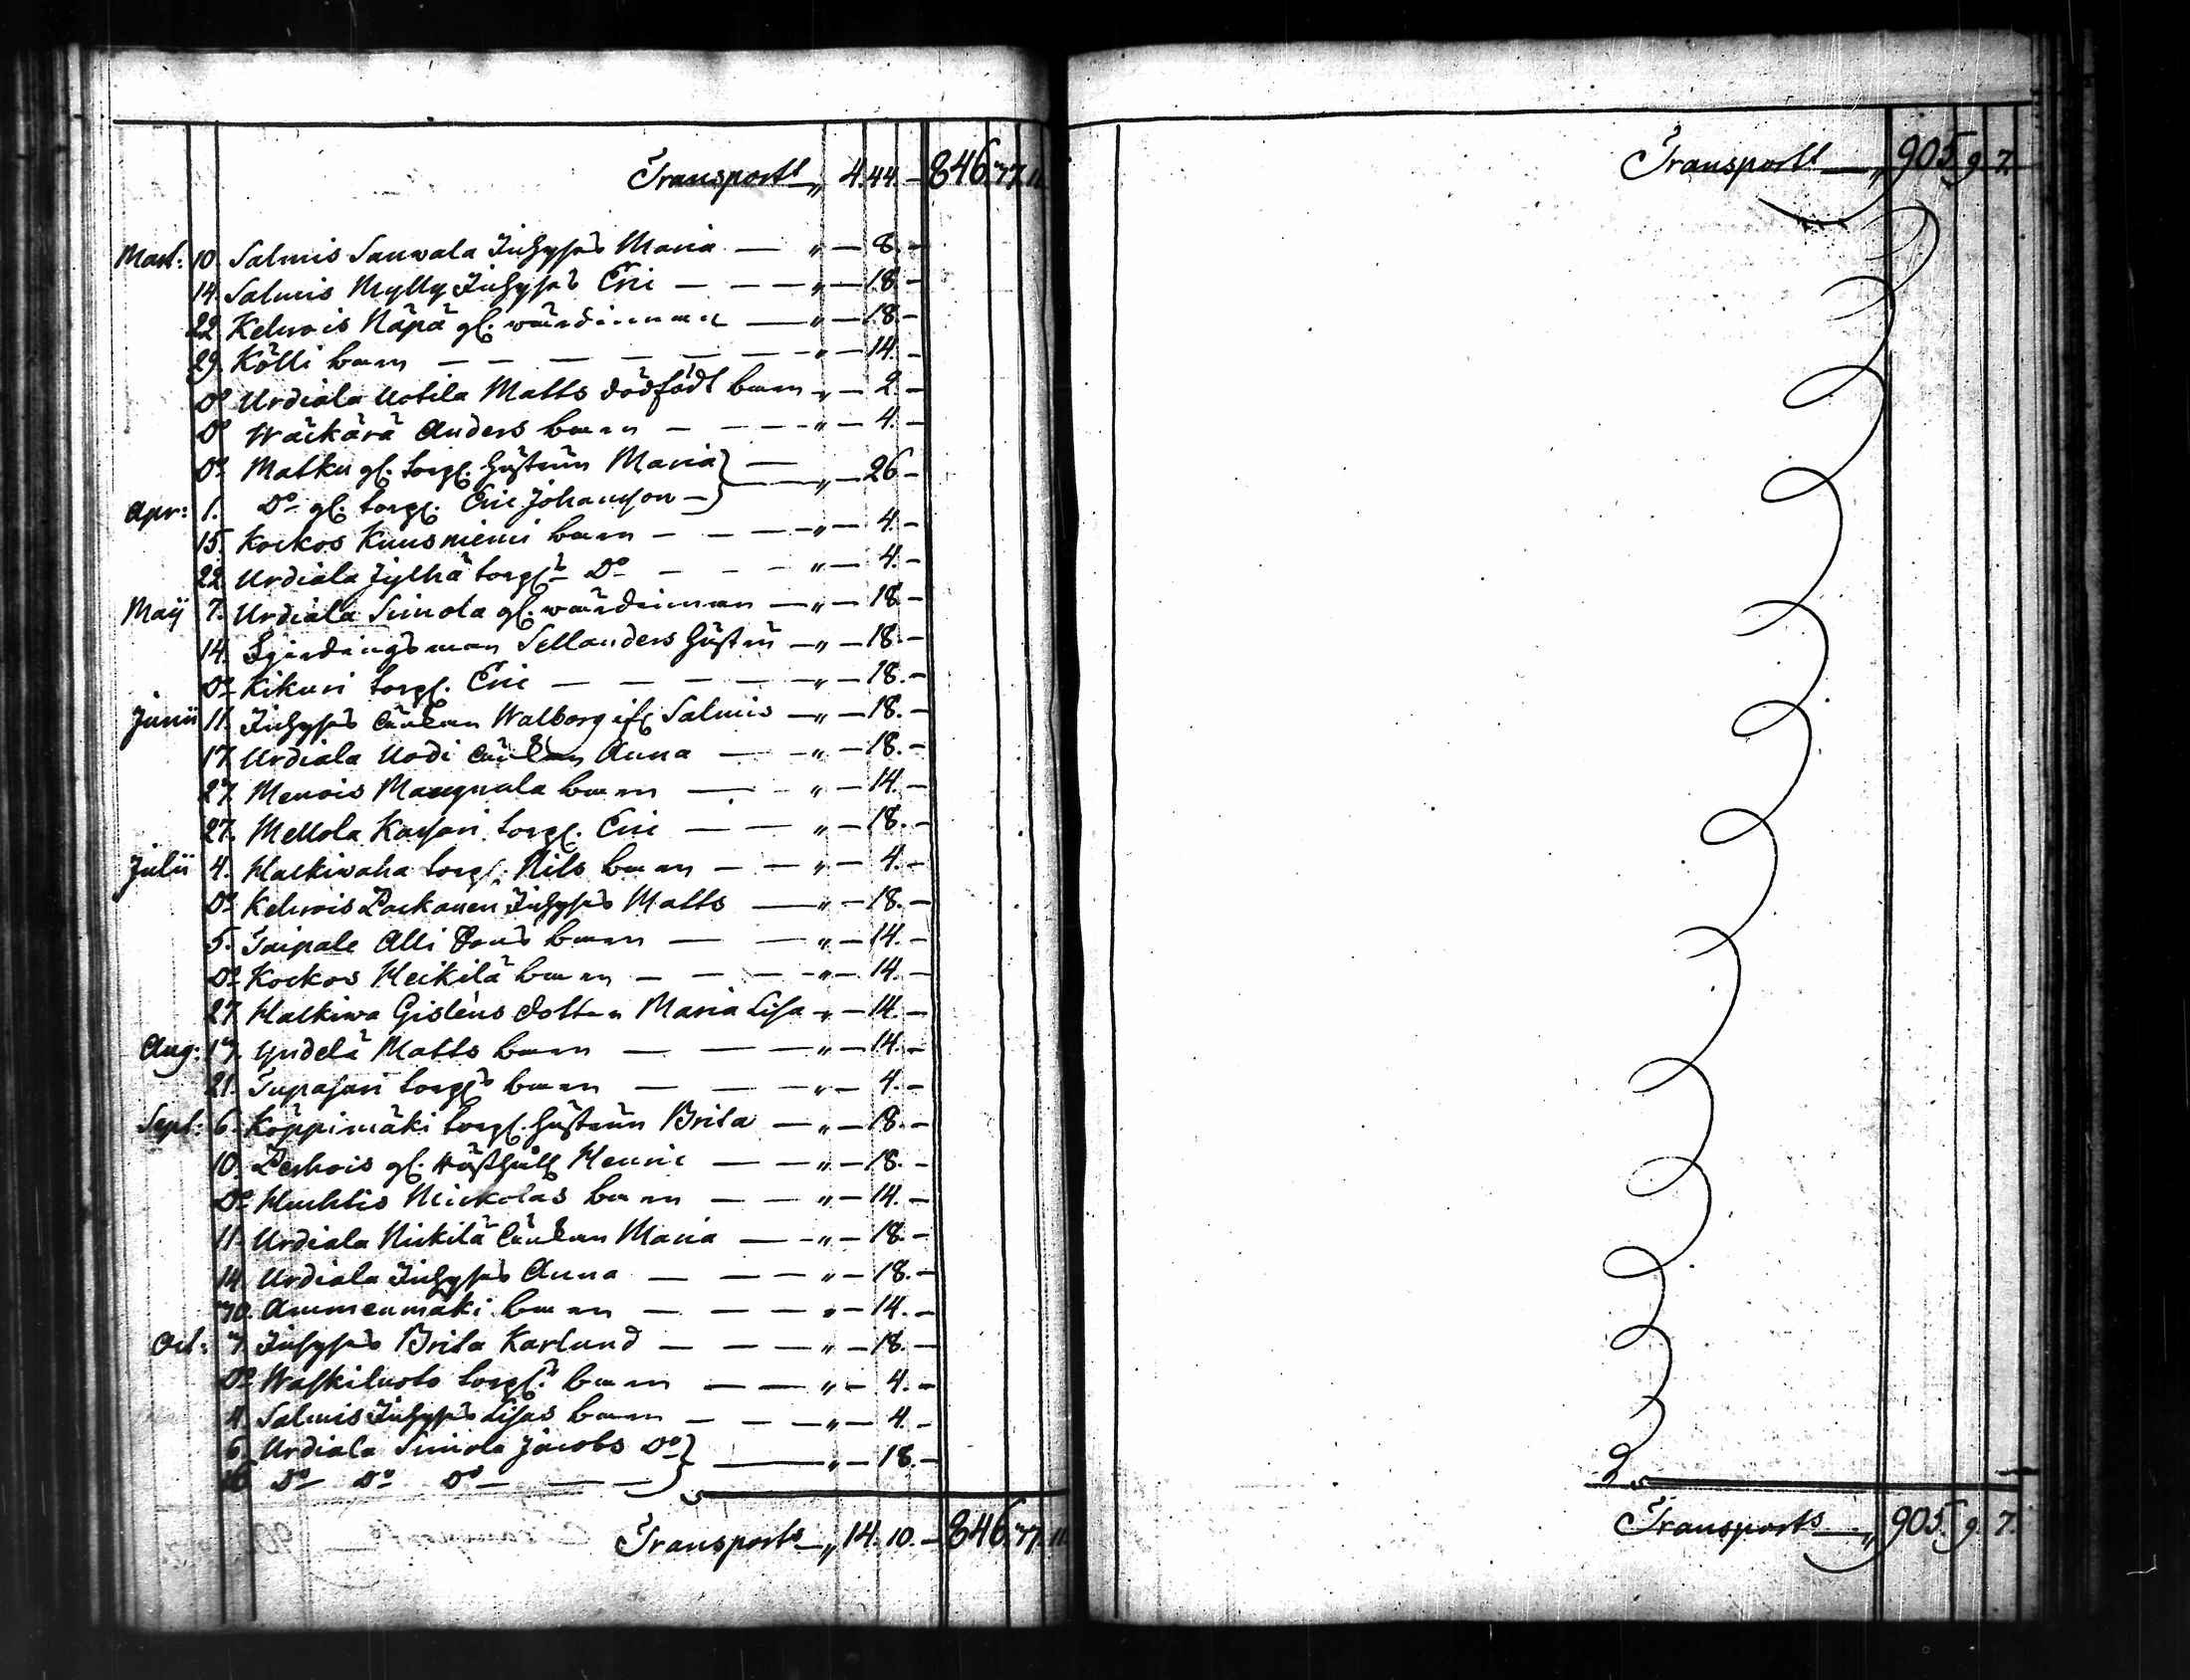 Transport " 4. 44. - 846. 77. 11.
Mart: 10. Salmis Sauvala Inhyses Maria — " — 8. -
14. Salmis Mylly Inhyses Eric — — — " — 18. -
22. Kehrois Näpä gl. wärdinnan — " — 18. -
29. Kölli barn — — — — — — " — 14. -
Do Urdiala Uotila Matts dödfödt barn " — 2. -
Do Wäckärä Anders barn — — — " — 4. -
Do Matku gl. torp. hustrun Maria } —
Apr: 1. Do gl. torp. Eric Johansson — } — " — 26 -
15. Kockos Kuusniemi barn — — — " — 4. -
22. Urdiala Jylhä torps Do — — — " — 4. -
Maij 7. Urdiala Simola gl. wärdinnan — " — 18. -
14. Fjerdingsman Sellanders hustru — " — 18. -
Do Kikuri torp. Eric — — — — — " — 18. -
Junii 11. Inhyses Enkan Walborg ifr. Salmis — " — 18. -
17. Urdiala Uodi Enkan Anna — — " — 18. -
27. Menois Maunula barn — — " — 14. -
27. Mellola Kaysari torp. Eric — — " — 18. -
Julii 4. Halkivaha torp. Nils barn — — " — 4. -
Do Kehrois Packanen Inhyses Matts — " — 18. -
5. Taipale Alli barn — — " — 14. -
Do Kockos Heikilä barn — — — " — 14. -
27. Halkiwa Gisléns dotter Maria Lisa " — 14. -
Aug: 17. Matts barn — — — " — 14. -
21. Tupasari torps barn — — — " — 4. -
Sept: 6. Köppimäki torp. hustrun Brita — " — 18. -
10. gl. Henric — — " — 18. -
Do Huhtis barn — — " — 14. -
11. Urdiala Nickilä Enkan Maria — " — 18. -
14. Urdiala Inhyses Anna — — — " — 18. -
Ammenmäki barn — — — " — 14. -
Oct: 7. Inhyses Brita Karlund — — — " — 18. -
Do Waskiluoto torps barn — — " — 4. -
4. Salmis Inhyses Lisas barn — — — " — 4. -
6. Urdiala Simola Jacobs Do } — " — 18. -
16. Do Do Do — — — }
Transport " 14. 10. - 846. 77. 11.
Transport " 905. 9. 7.
Transport " 905. 9. 7.